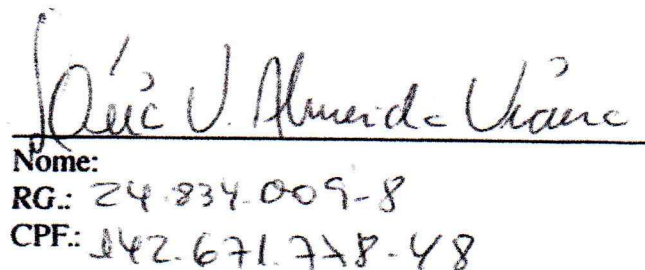 V. Almeida Viana
Nome:
RG.: 24.834.009-8
CPF.: 142.671.778-48